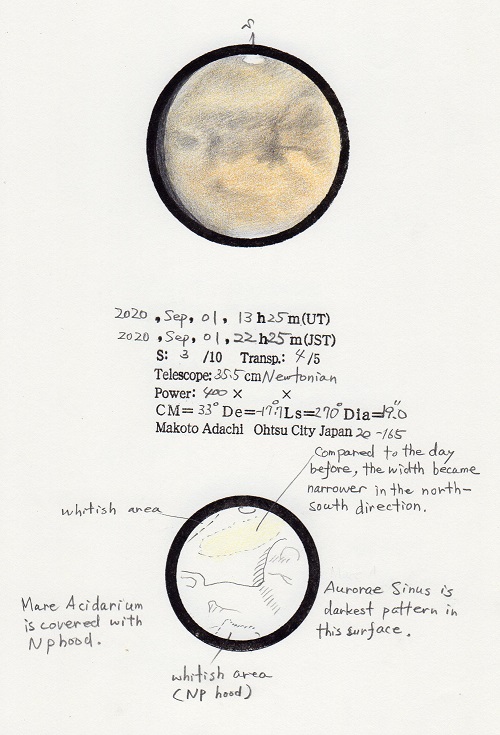 S
2020, Sep, 01, 13h25m(UT)
2020, Sep, 01, 22h25m(JST)
S: 3 /10 Transp.: 4/5
Telescope: 35.5cm Newtonian
Power: 400 × ×
CM= 33° De=-17.7 Ls=270° Dia=19.0"
Makoto Adachi Ohtsu City Japan 20-165
Compared to the day
before, the width became
narrower in the north-
south direction.
whitish area
Mare Acidarium
is covered with
Nphood.
Aurorae Sinus is
darkest pattern in
this surface.
whitish area
(NP hood)